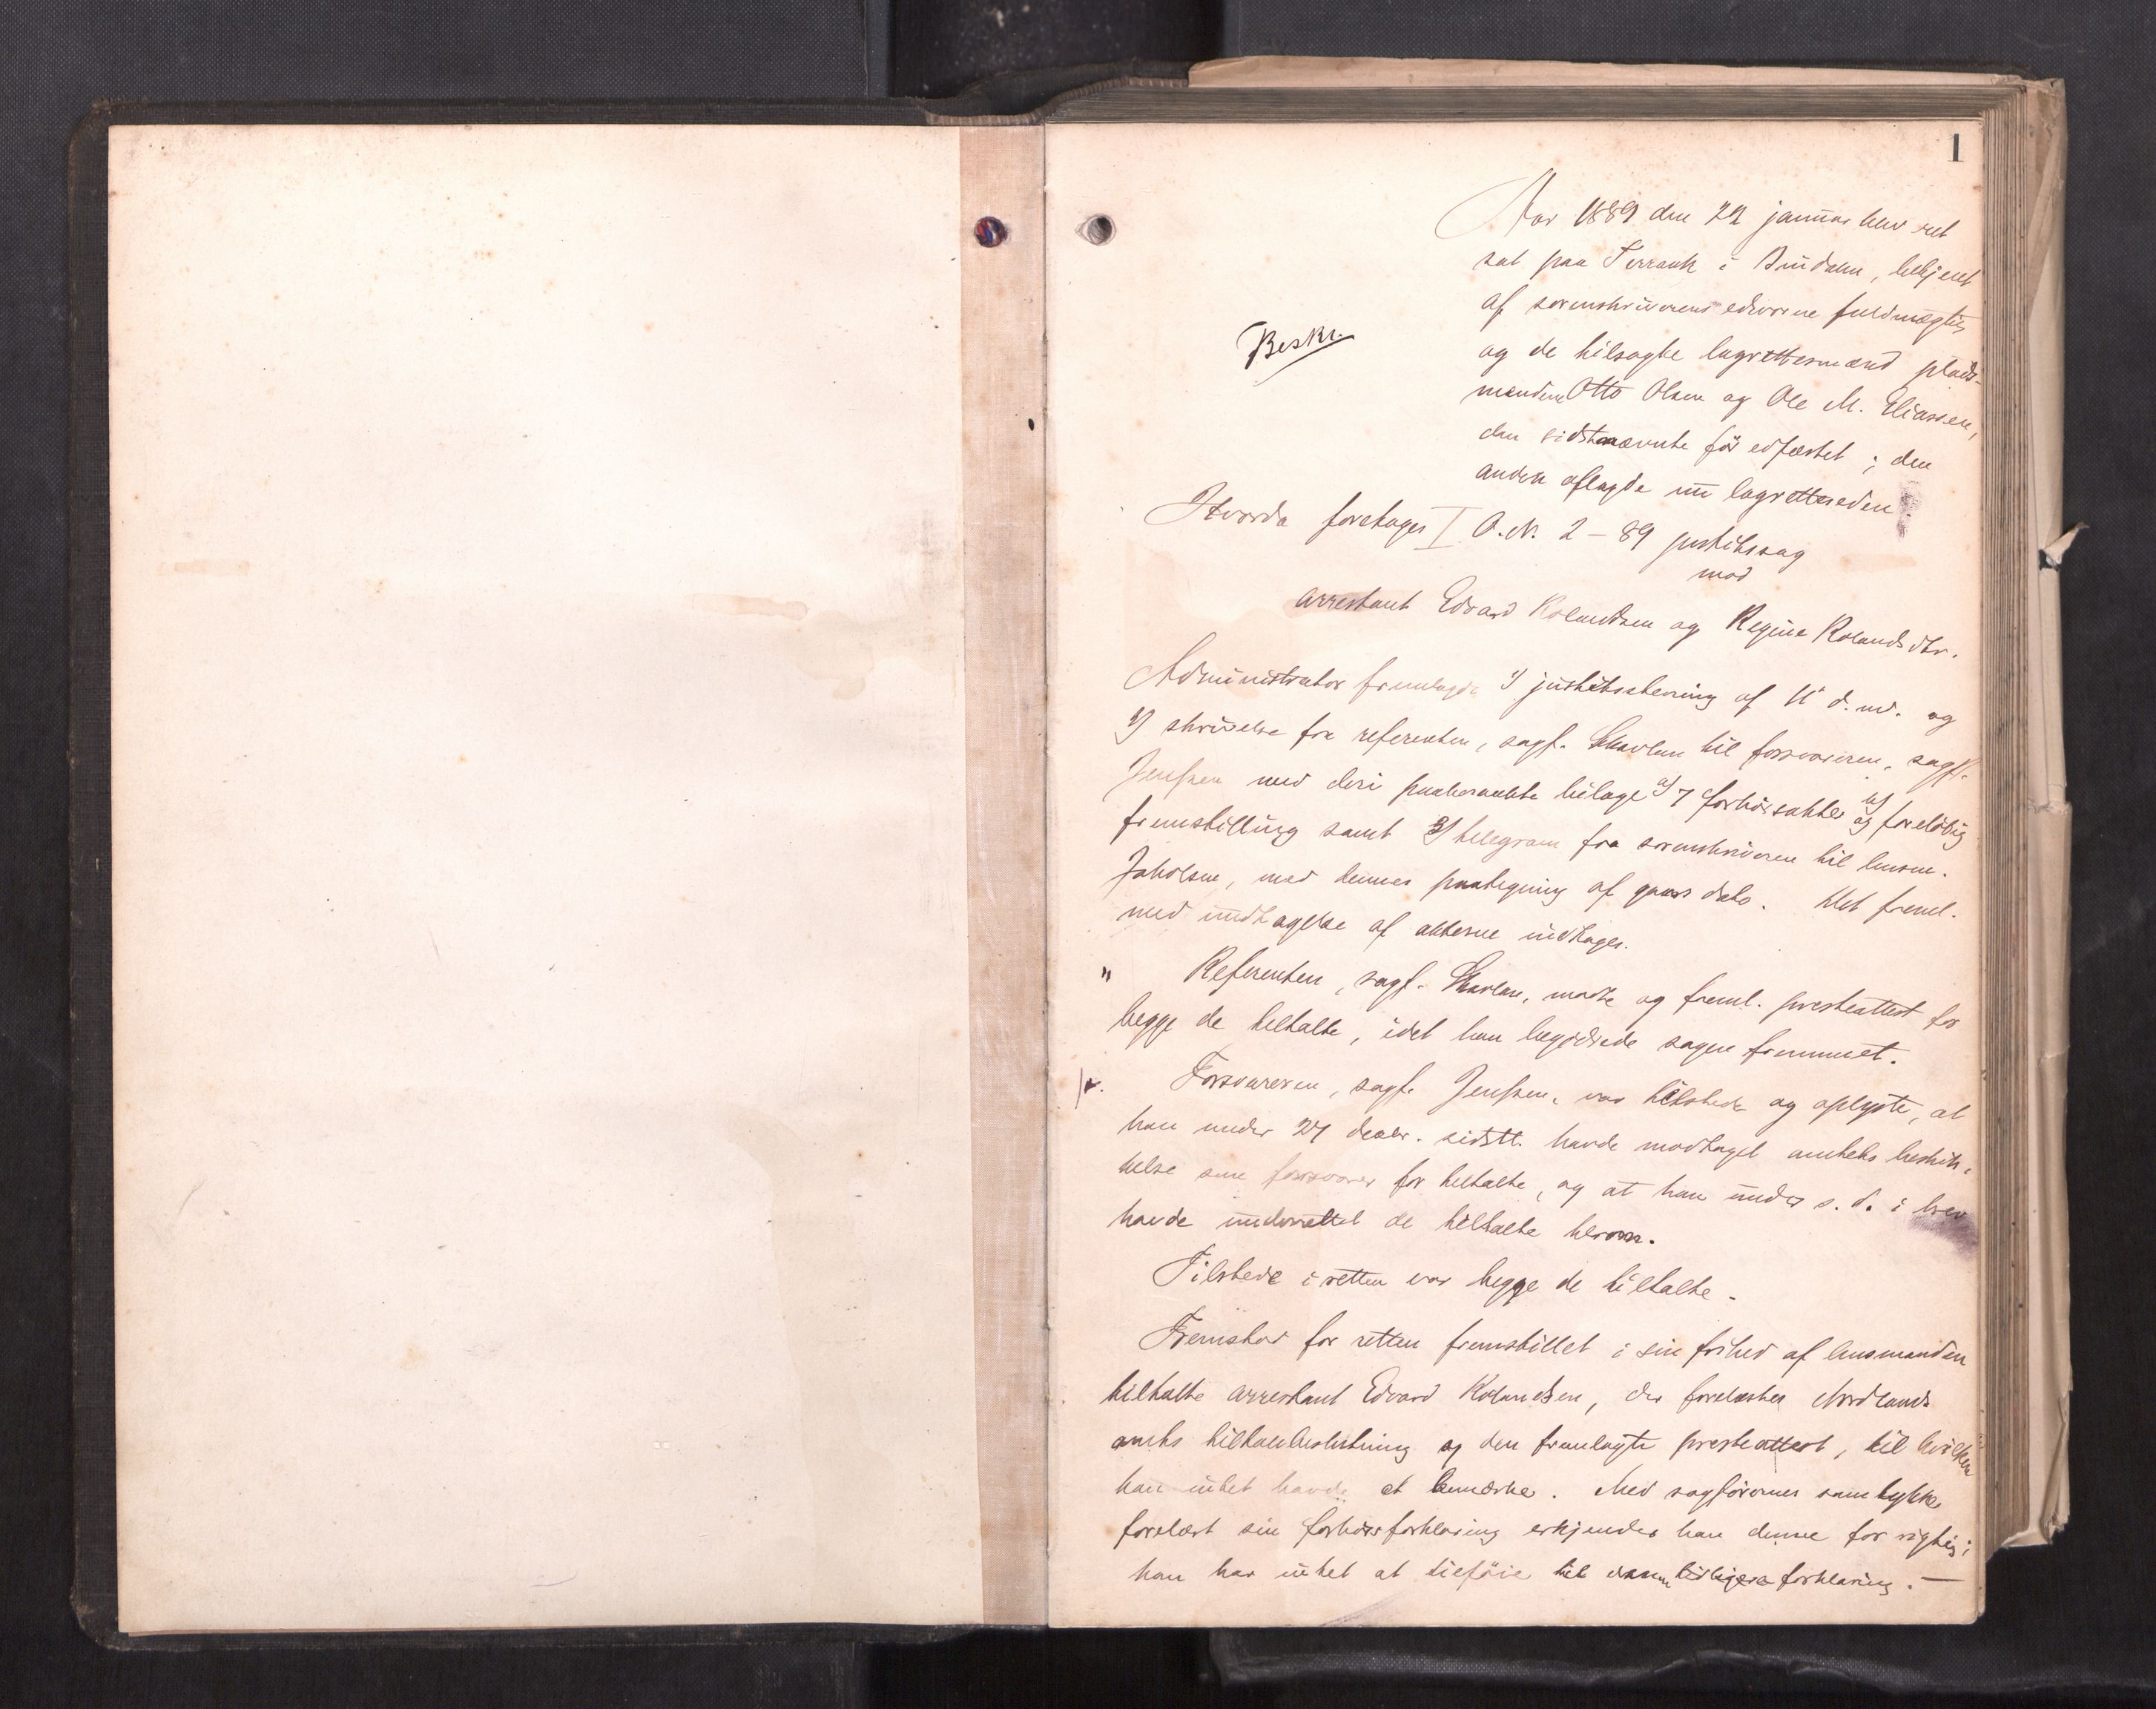 1
Aar 1889 den 22 januar blev ret
sat paa Terraak i Bindalen, betjent
af sorenskriverens edsvorne fuldmægtig
Beskr.
og de tilsagte lagrettesmænd plads-
mændene Otto Olsen og Ole M. Eliassen,
den sidstnævnte før edfæstet; den
anden aflagde nu lagretteseden.
Hvorda foretoges I O.N. 2 - 89 justitssag
mod
arrestant Edvard Rolandsen og Regine Rolandsdtr.
Administrator fremlagde 1) justitsstevning af 11 d. md. og
2) skrivelse fra referenten, sagf. Skavlan til forsvareren, sagf.
Jenssen med deri paaberaabte bilage a) 7 forhørsakter og b) foreløbig
fremstilling samt 3) telegram fra sorenskriveren til lensm.
Jakobsen, med dennes paategning af gaars dato. Det freml.
med undtagelse af akterne indtages.
" Referenten, sagf. Skavlan, mødte og freml. presteattest for
begge de tiltalte, idet han begjærede sagen fremmet.
Forsvareren, sagf. Jenssen, var tilstede og oplyste, at
han under 27 decbr. sidstl. havde modtaget amtets beskik-
kelse som forsvarer for tiltalte, og at han under s. d. i brev
havde underrettet de tiltalte herom.
Tilstede i retten var begge de tiltalte.
Fremstod for retten fremstillet i sin frihed af lensmanden
tiltalte arrestant Edvard Rolandsen, der forelæstes Nordlands
amts tiltalebeslutning og den fremlagte presteattest, til hvilken
han intet havde at bemærke. Med sagførernes samtykke
forelæst sin forhørsforklaring erkjender han denne for rigtig;
han har intet at tilføie til denne tidligere forklaring. —